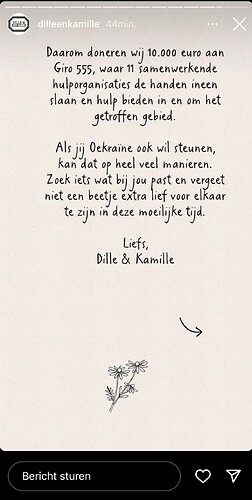 dilleenkamille 44min.
Daarom doneren wij 10.000 euro aan
Giro 555, waar 11 samenwerkende
hulporganisaties de handen ineen
slaan en hulp bieden in en om het
getroffen gebied.
Als jij Oekraïne ook wil steunen,
kan dat op heel veel manieren.
Zoek iets wat bij jou past en vergeet
niet een beetje extra lief voor elkaar
te zijn in deze moeilijke tijd.
Liefs,
Dille & Kamille
Bericht sturen